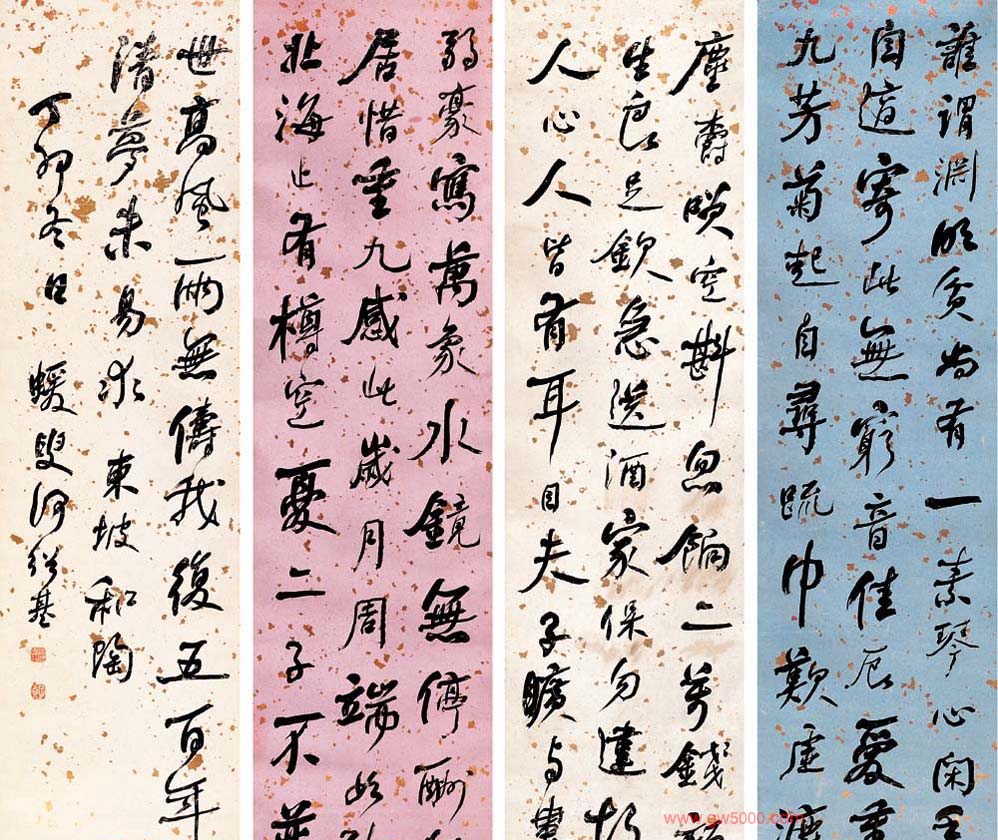 誰謂淵明貧尚有一素琴心閑手
自適寄此無窮音佳辰愛重
九芳菊起自尋疏巾歎虛漉
塵爵咲空斟忽餉二萬錢顏
生良足欽急送酒家保勿違故
人心人皆有耳目夫子曠与婁
弱豪寫萬象水鏡無停酬
居惜重九感此歲月周端如孔
北海止有樽空憂二子不並
世高風兩無儔我復五百年
清夢未易求 東坡和陶
丁卯冬日 蝯叟何紹基
www.gw5000.com